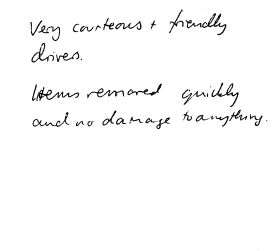 Very courteous + friendly
drives.
Items removed quickly
and no damage to anything.